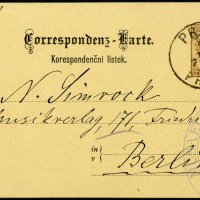 Correspondenz-Karte.
Korespondenční lístek.
N. Simrock
Musikverlag, 171 Friedri
in
v
Berli